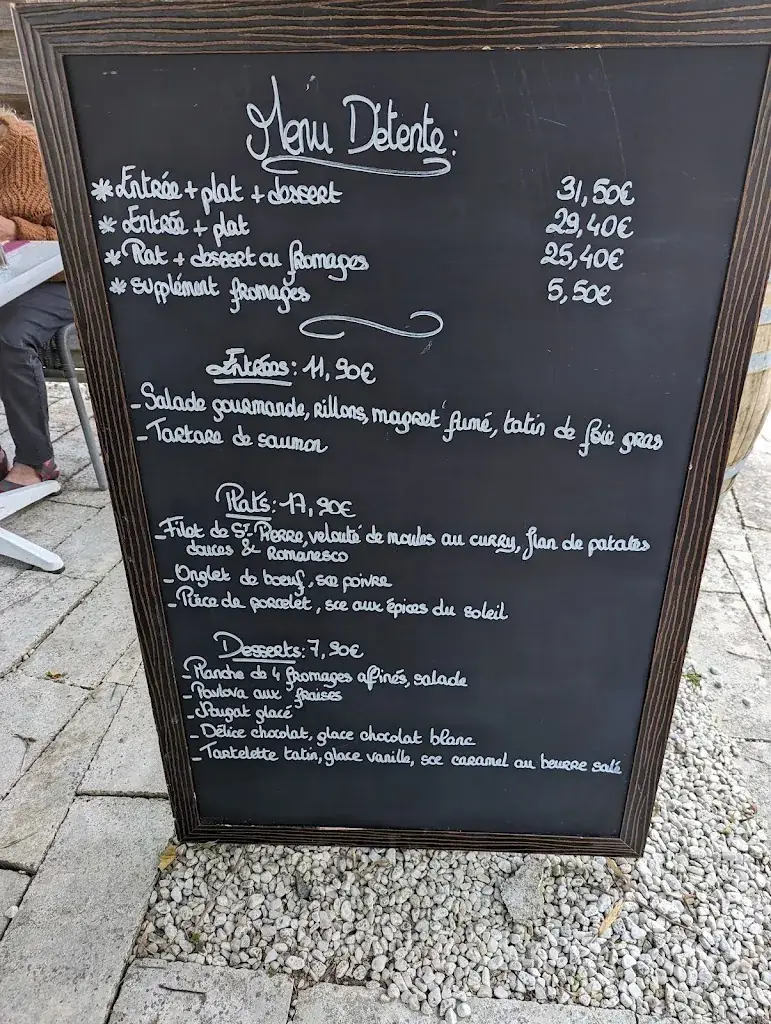 Menu Détente:
* Entrée + plat + dessert 31,50€
* Entrée + plat 29,40€
* Plat + dessert ou fromages 25,40€
* supplément fromages 5,50€
Entrées: 11,90€
- Salade gourmande, rillons, magret fumé, tatin de foie gras
- Tartare de saumon
Plats: 17,90€
- Filet de St-Pierre, velouté de moules au curry, flan de patates
douces & Romanesco
- Onglet de bœuf, sce poivre
- Pièce de porcelet, sce aux épices du soleil
Desserts: 7,90€
- Planche de 4 fromages affinés, salade
- Pavlova aux fraises
- Nougat glacé
- Délice chocolat, glace chocolat blanc
- Tartelette tatin, glace vanille, sce caramel au beurre salé